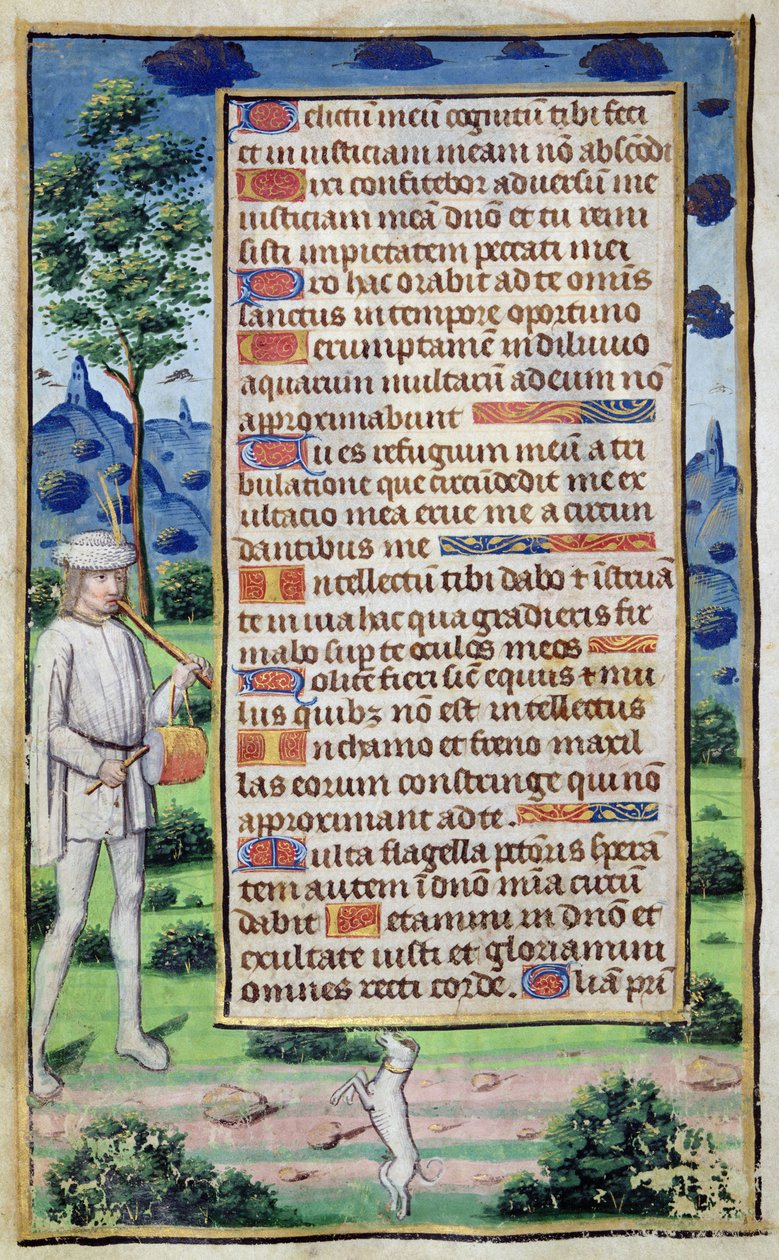 Delictū meū cognitū tibi feci
et iniusticiam meam nō abscōdi
Dixi confitebor aduersū me
iniusticiam meā dn̄o et tu remi
sisti impietatem peccati mei
Pro hac orabit ad te omīs
sanctus in tempore oportuno
Uerumptamē in diluuio
aquarum multarū ad eum nō
approximabunt
Tu es refugium meū a tri
bulatione que circūdedit me ex
ultacio mea erue me a circun
dantibus me
Intellectū tibi dabo ⁊ īstruā
te in uia hac qua gradieris fir
mabo sup̄ te oculos meos
Nolite fieri siē equus ⁊ mu
lus quibꝫ nō est intellectus
In chamo et freno maxil
las eorum constringe qui nō
approximant ad te.
Multa flagella pctōris sperā
tem autem ī dn̄o mīa circū
dabit Letamini in dn̄o et
exultate iusti et gloriamini
omnes recti corde. Gliā prī